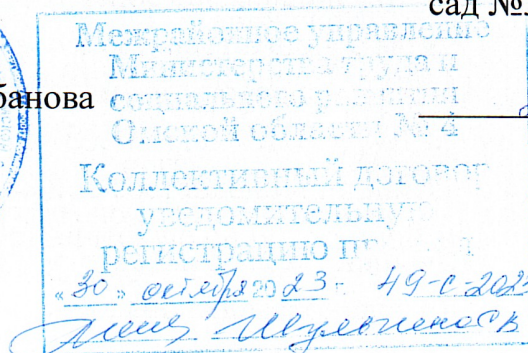 сад №
Межрайонное управление
Министерства труда и
банова социального развития
Омской области № 4
Коллективный договор
уведомительную
регистрацию
«30» октября 2023 г. 49-с-2023